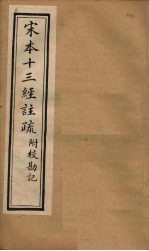 宋本十三經註疏附校勘記